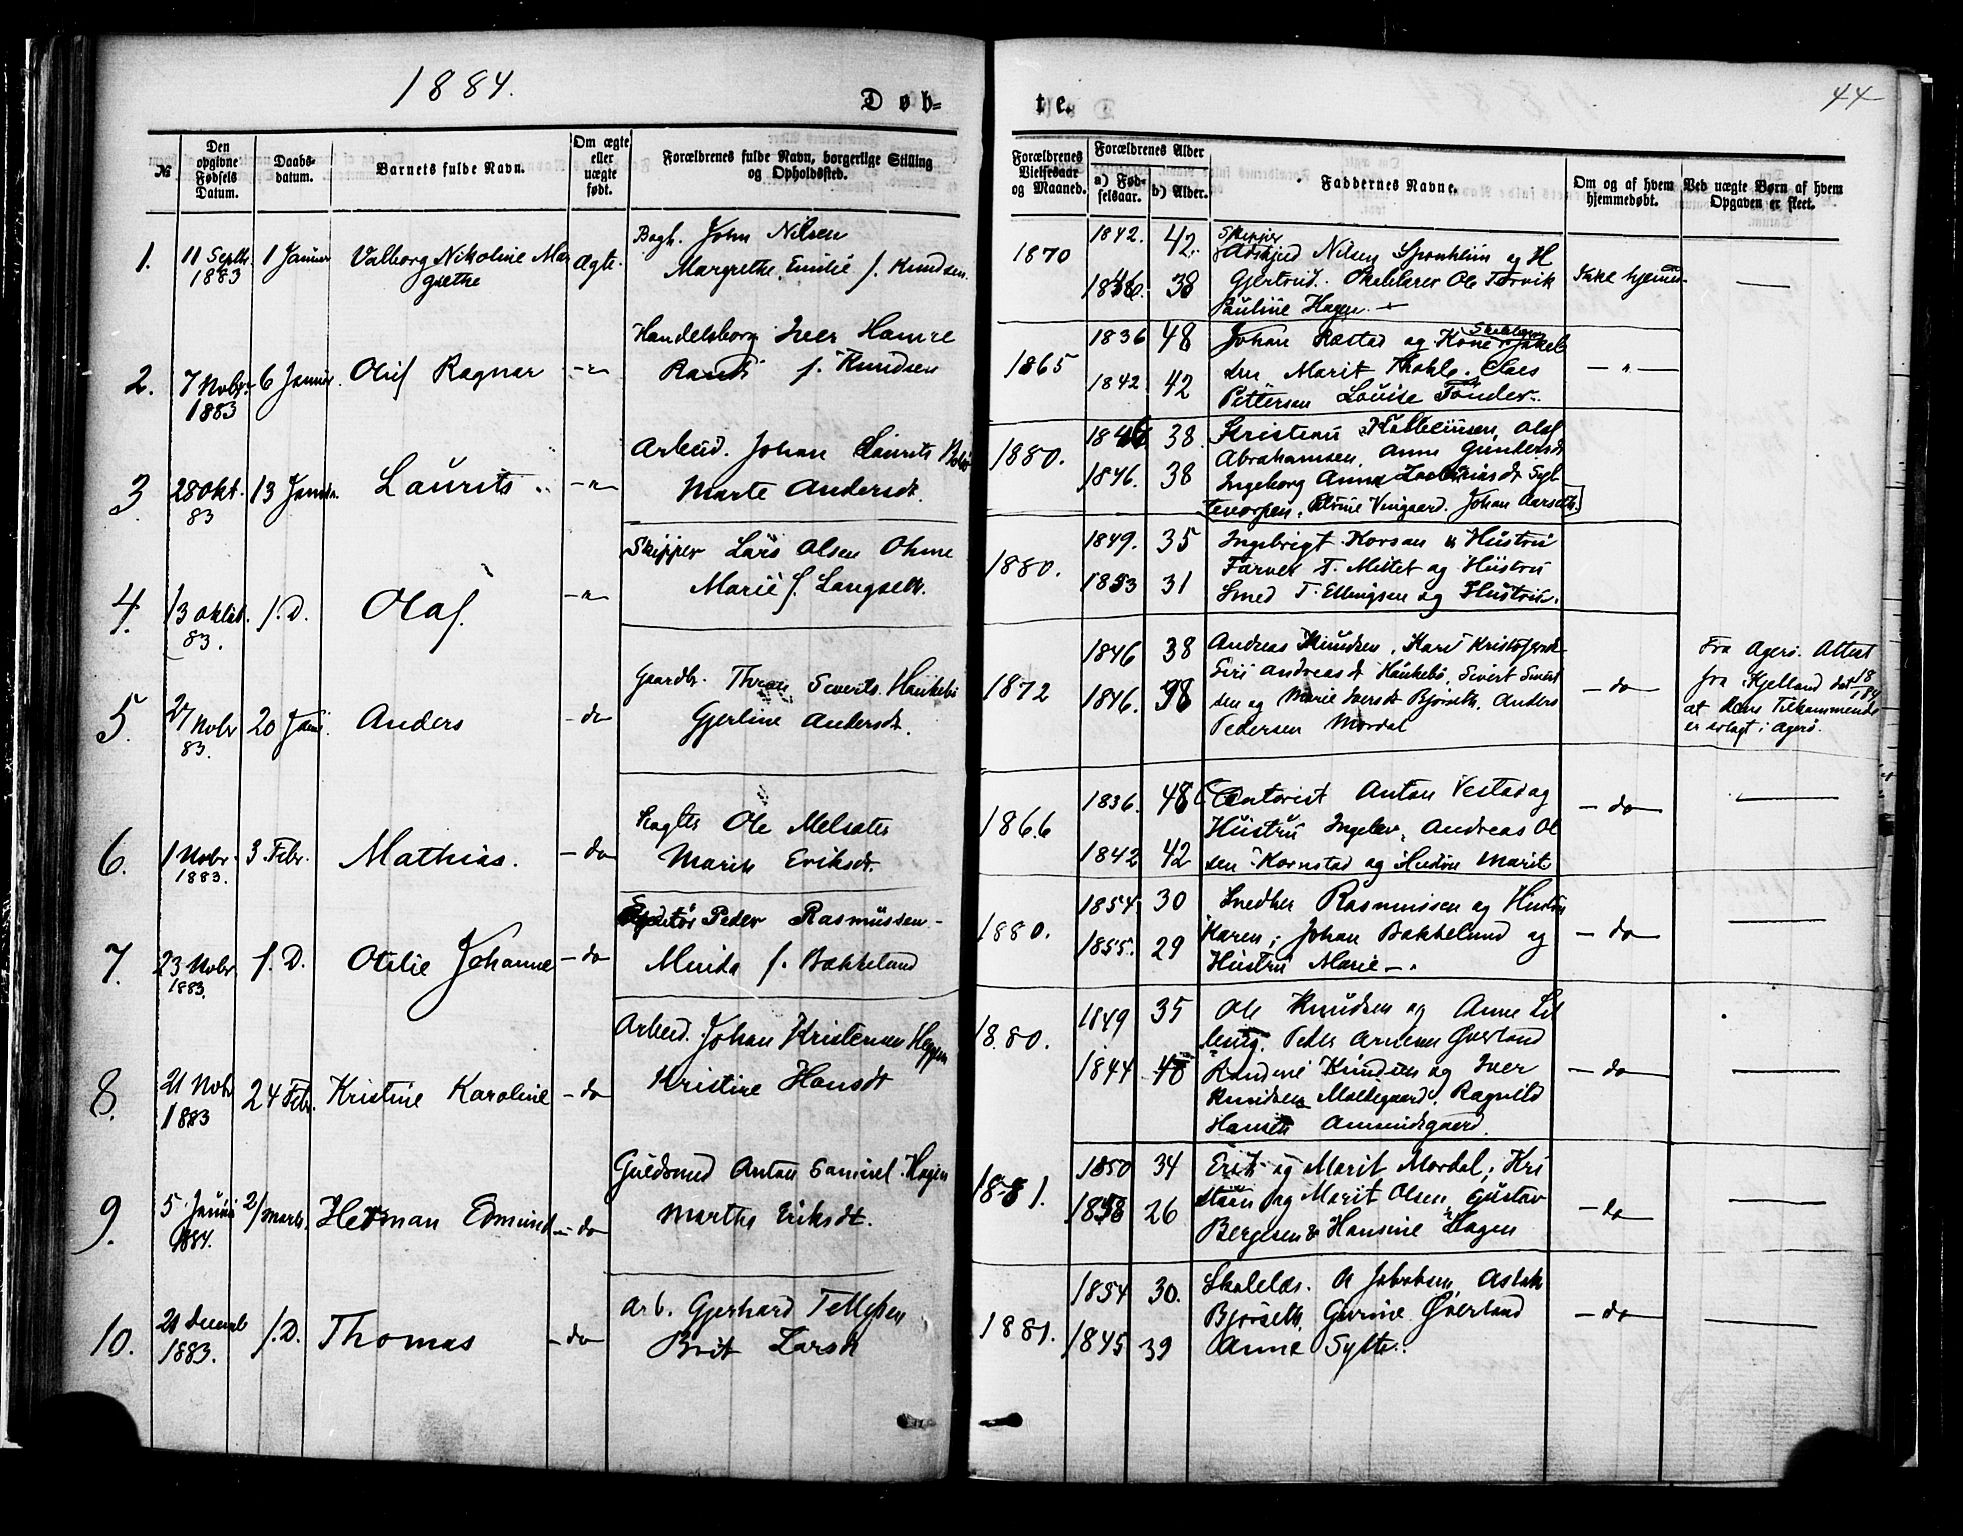 1884.
Døb-
te.
44
№
Den opgivne Fødsels Datum.
Daabs-datum.
Barnets fulde Navn.
Om ægte eller uægte født.
Forældrenes fulde Navn, borgerlige Stilling og Opholdssted.
Forældrenes Vielsesaar og Maaned.
Forældrenes Alder
a) Fødselsaar.
b) Alder.
Faddernes Navne.
Om og af hvem hjemmedøbt.
Ved uægte Børn af hvem Opgaven er skeet.
1. 11 Septb. 1883 1 Januar Valborg Nikoline Margrethe Ægte.
John Nilsen
Margrethe Emilie f. Knudsen
1870 1842. 42. 38
Skipper
Nilsen Sponheim og H
Gjertrud. Ole Torvik
Pauline Hagen
Ikke hjemme
2. 7 Novbr 1883 6 Januar. Oluf Ragnar - " -
Handelsborg Iver Hamre
Randi f. Knudsen
1865 1836 48 1842 42
Johan Ræstad og Kone
Marit Claes
Pettersen Louise Tønder.
- " -
3. 28 Okt. 83 13 Januar. Laurits - " -
Arbeid. Johan Laurits
Marte Andersdt.
1880. 38. 1846. 38
Olaf
Abrahamsen, Anne Gundersdt
Ingeborg Anne
Johan Aarseth.
4. 13 Oktob. 83. S. D. Olaf. - " -
Skipper Lars Olsen Ohme
Marie f. Langseth.
1880. 1849. 35 1853 31
Ingebrigt Korsan og Hustru
Farver T. Mittet og Hustru
Smed T. Ellingsen og Hustru.
5 27 Novbr 83. 20 Jani. Anders - do
Gaardbr. Siverts. Haukebø
Gjertine Andersdt.
1872 1846 38 1846. 38
Andreas Knudsen, Kari Kristofersdt
Siri Andreasdt Haukebø, Sivert Sivert
sen og Marie Iversdt Bjørseth, Anders
Pedersen Mordal
- do -
Fra Agerø. Attest
fra Kjelland dat 18/1 84
at dens Tilkommende
er erlagt i Agerø.
6. 1 Novbr. 1883. 3 Febr. Mathias. - do
Ole Melsæter
Marit Eriksdt.
1866 1836. 48 1842 42
Anton Vestad og
Hustru Ingeb., Andreas Ol
sen Kornstad og Hustru Marit
- do -
7. 23 Novbr 1883. S. D. Otilie Johanne - do
Peder Rasmussen
Minda f. Bakkeland
1880. 1854. 30 1855. 29
Snedker Rasmussen og Hustru
Karen; Johan Bakkelund og
Hustru Marie
- do -
8. 21 Novbr 1883 24 Febr. Kristine Karoline - do
Arbeid. Johan Kristensen
Kristine Hansdt
1880. 1849 35 1844
Ole Knudsen og Anne Lil
leng. Peder Arnesen Øverland
Knudsen og Iver
Knudsen Moldegaard. Ragnild
Hansdt Amundsgaard.
- do -
9. 5. Januar 1884. 2/ Marts. Herman Edmund - do
Guldsmed Anton Samuel Hagen
Marthe Eriksdt.
1881. 1850 34 1858 26
Erik og Marit Mordal, Kri
stian og Marit Olsen, Gustav
Bergesen & Hansine Hagen
- do -
10. 21 Decemb 1883. S. D. Thomas - do
Arb. Gjerhard Tellefsen
Brit Larsdt
1881. 1854 30. 1845 39
Jakobsen, Aslak
Bjørseth, Gurine Øverland
Anne Sylte.
- do -